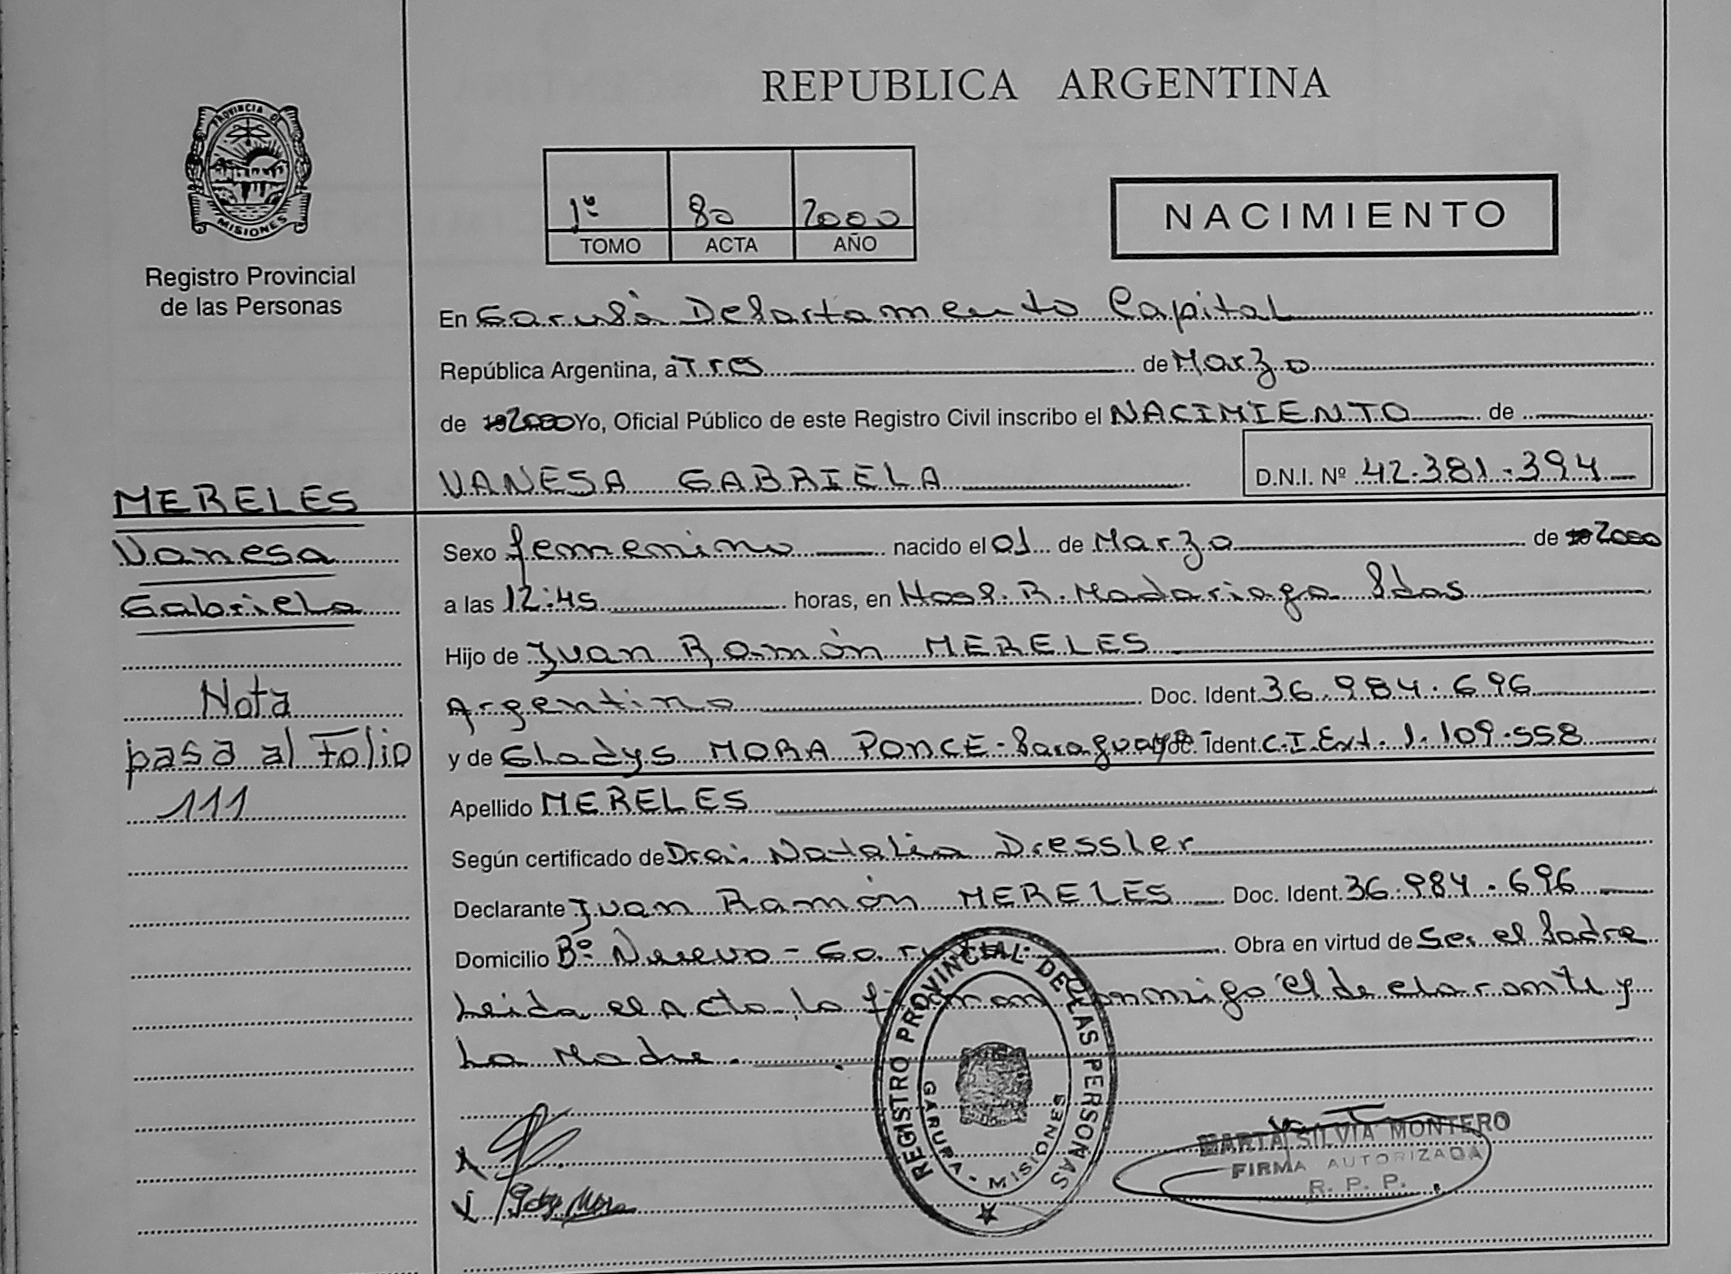 REPUBLICA ARGENTINA
PROVINCIA DE
MISIONES
Registro Provincial
de las Personas
1º 80 2000
TOMO ACTA AÑO
NACIMIENTO
En Garupá Departamento Capital
República Argentina, a Tres de Marzo
de 2000 Yo, Oficial Público de este Registro Civil inscribo el NACIMIENTO de
VANESA GABRIELA D.N.I. Nº 42.381.394
MERELES
Vanesa
Gabriela
Nota
pasa al Folio
111
Sexo femenino nacido el 01 de Marzo de 2000
a las 12:45 horas, en Hosp. R. Madariaga Pdas
Hijo de Juan Ramón MERELES
Argentino Doc. Ident. 36.984.696
y de Gladys MORA PONCE - Paraguaya Doc. Ident. C.I.Ext. 1.109.558
Apellido MERELES
Según certificado de Dra. Natalia Dressler
Declarante Juan Ramón MERELES Doc. Ident. 36.984.696
Domicilio Bº Nuevo - Obra en virtud de Ser el Padre
Leida el Acta, la firman conmigo el declarante y
La Madre.
REGISTRO PROVINCIAL DE LAS PERSONAS
GARUPA - MISIONES
MARTA SILVIA MONTERO
FIRMA AUTORIZADA
R. P. P.